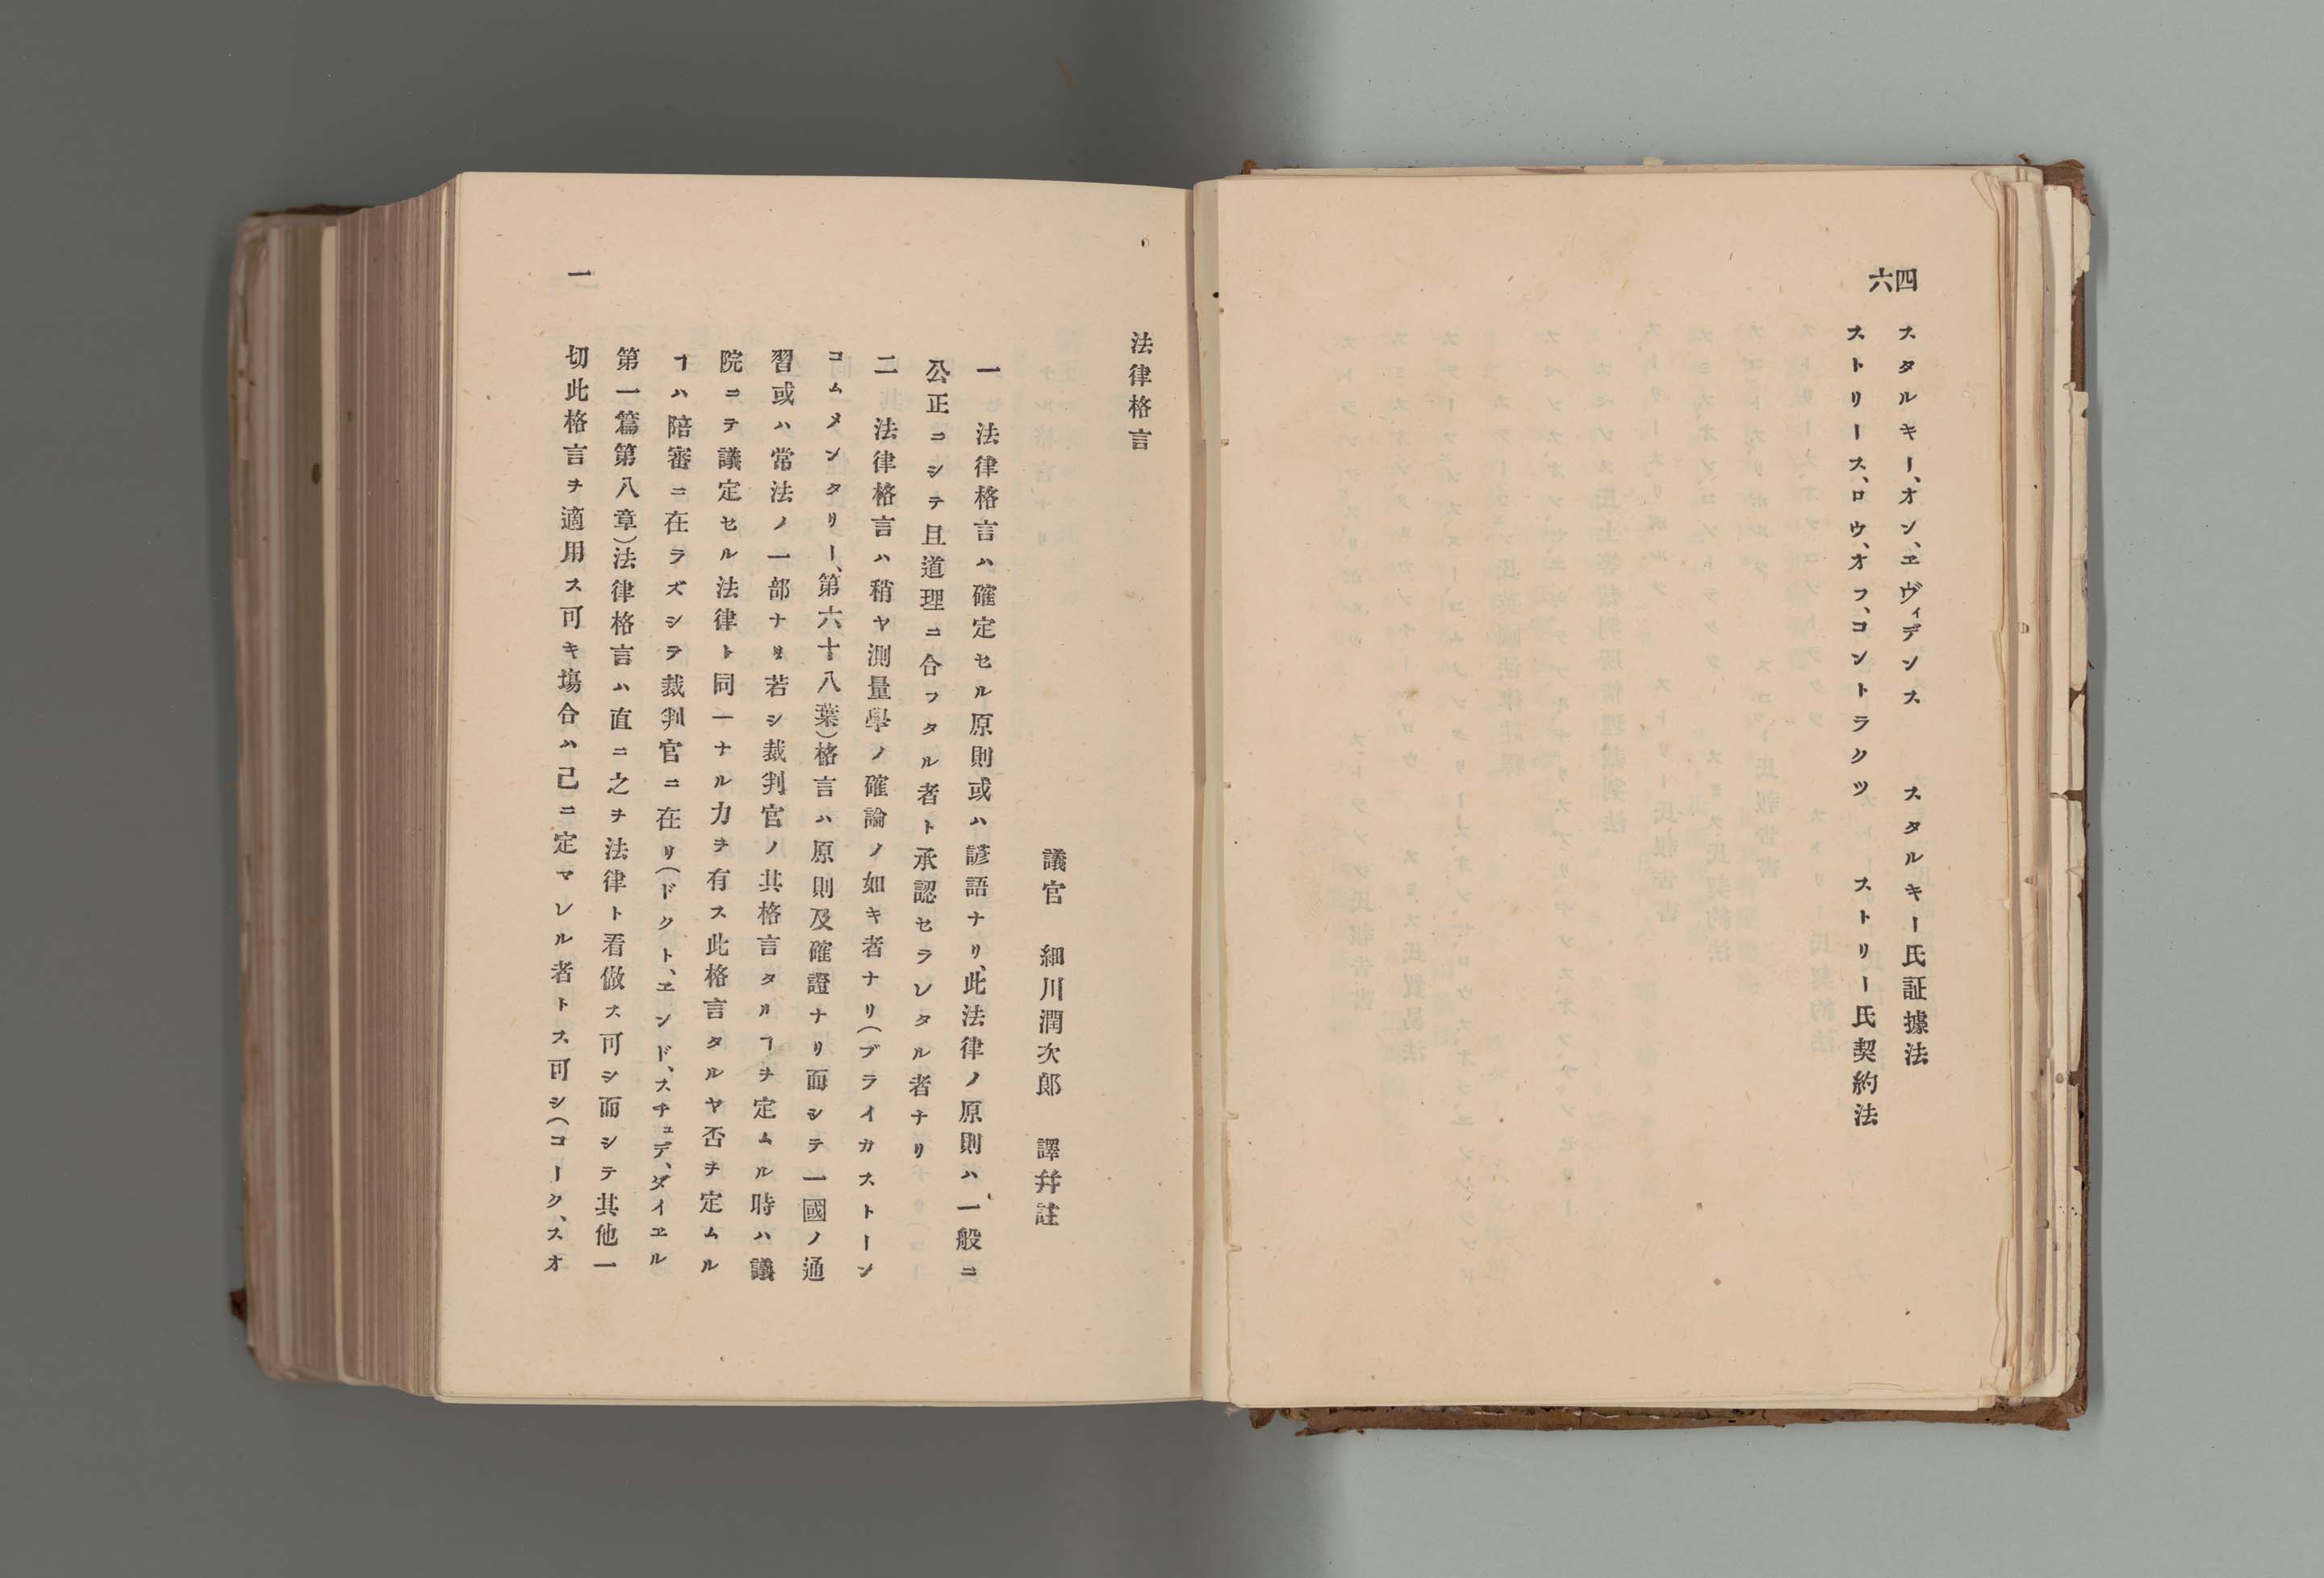 四六
スタルキー、オン、ヱヴィデンス　スタルキー氏証據法
ストリース、ロウ、オフ、コントラクツ　ストリー氏契約法
法律格言
議官　細川潤次郎　譯幷註
一　法律格言ハ確定セル原則或ハ諺語ナリ、此法律ノ原則ハ、一般ニ
公正ニシテ且道理ニ合フタル者ト承認セラレタル者ナリ
二　法律格言ハ稍ヤ測量學ノ確論ノ如キ者ナリ（ブライカストーン
コムメンタリー、第六十八葉）格言ハ原則及確證ナリ而シテ一國ノ通
習或ハ常法ノ一部ナリ若シ裁判官ノ其格言タルヿヲ定ムル時ハ議
院ニテ議定セル法律ト同一ナル力ヲ有ス此格言タルヤ否ヲ定ムル
ヿハ陪審ニ在ラズシラ裁判官ニ在リ（ドクト、ヱンド、スチュデ、ダイヱル
第一篇第八章）法律格言ハ直ニ之ヲ法律ト看做ス可シ而シテ其他一
切此格言ヲ適用ス可キ塲合ハ己ニ定マレル者トス可シ（コーク、スオ
一